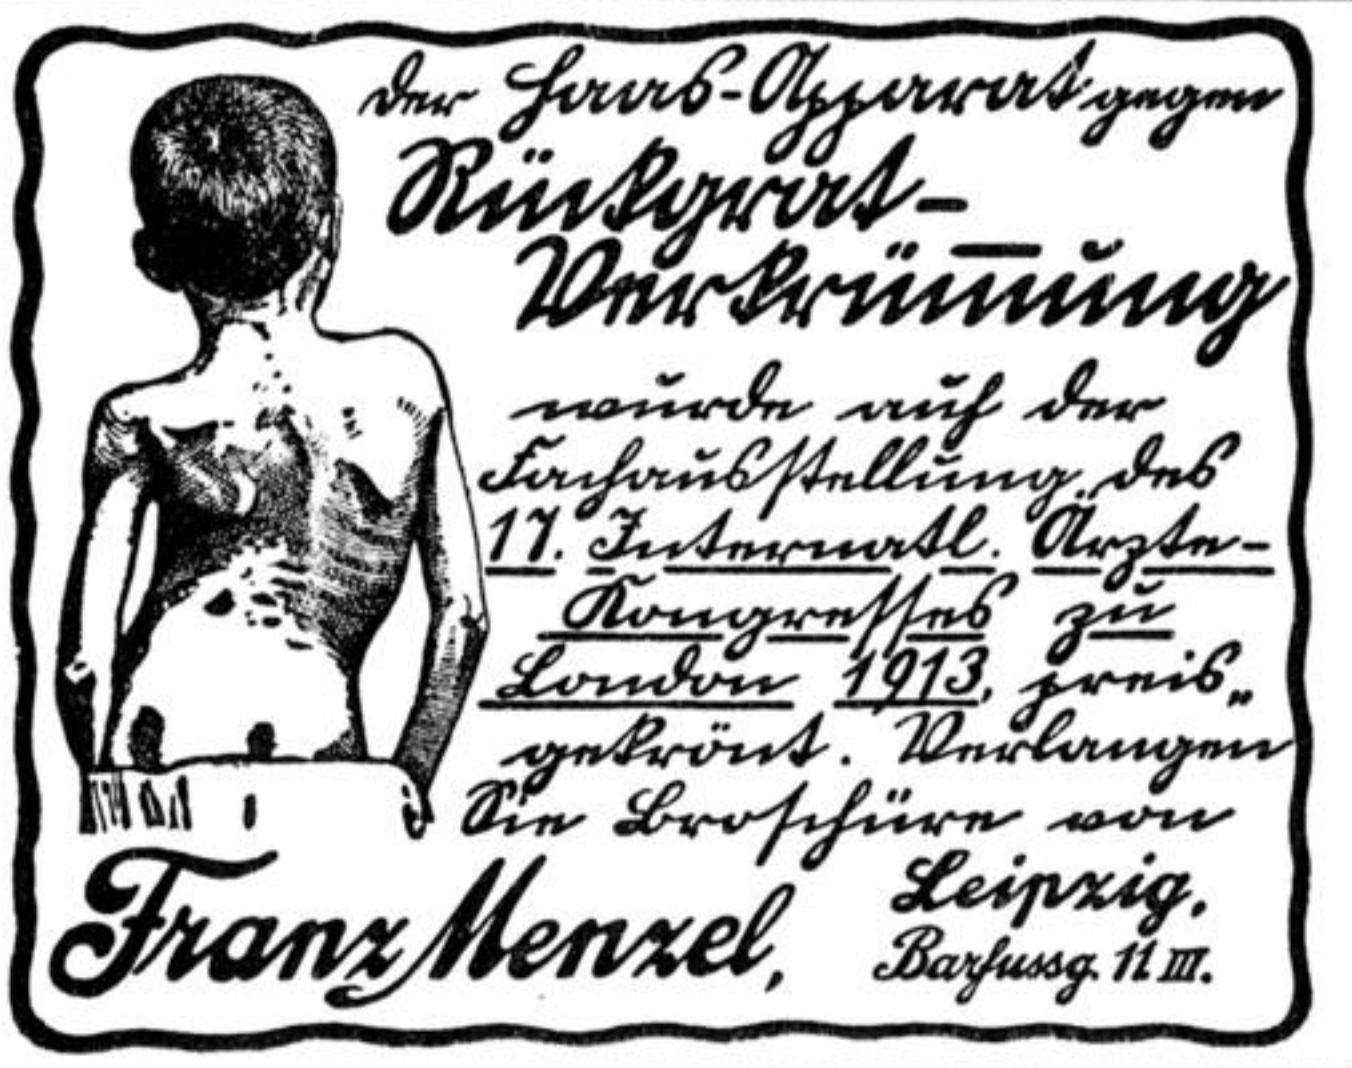 Der Haas-Apparat gegen
Rückgrat-
Verkrüm̅ung
wurde auf der
Fachausstellung des
17. Internatl. Ärzte-
Kongresses zu
London 1913, preis„
gekrönt. Verlangen
Sie Broschüre von
Franz Menzel,
Leipzig.
Barfussg. 11 III.